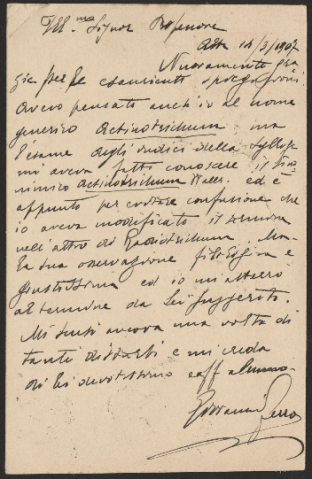 Ill.ma Signor Professore
Asti 14/3/1907
Nuovamente gra
zie per le esaurienti spiegazioni
Avevo pensato anch'io al nome
generico Actinotrichum: ma
l'esame degli indici della Sylloge
mi aveva fatto conoscere il
nimico Actinotrichum Wallr. ed è
appunto per evitare confusione che
io aveva modificato il termine
nell'altro di Radiotrichum. Ma
la sua osservazione filologica è
giustissima ed io mi attero
al termine da Lei suggerito.
Mi scusi ancora una volta di
tanti disturbi e mi creda
di Lei devotissimo aff alunno
Giovanni Ferro